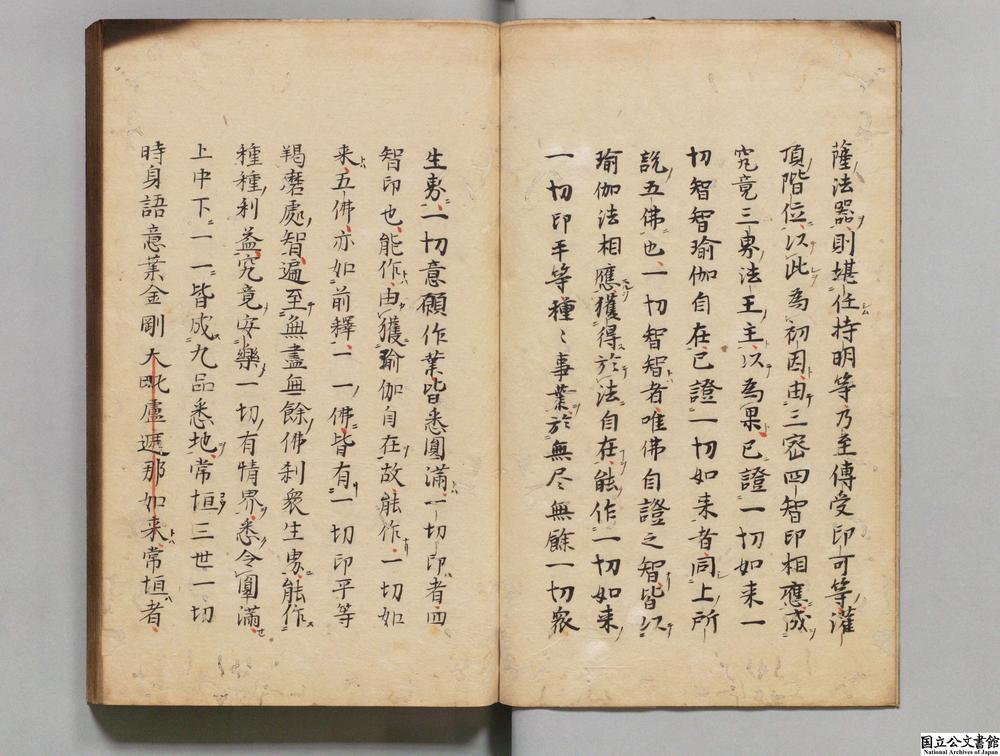 薩法器則堪任持明等乃至傳受印可等灌
頂階位以此為初因由三密四智印相應成
究竟三界法王主以為果已證一切如来一
切智智瑜伽自在已證一切如来者同上所
説五佛也一切智智者唯佛自證之智皆以
瑜伽法相應獲得於法自在能作一切如来
一切印平等種〻事業於無尽無餘一切衆
生界一切意願作業皆悉圓滿一切印者四
智印也能作由獲瑜伽自在故能作一切如
来五佛亦如前釋一一佛皆有一切印平等
羯磨處智遍至無盡無餘佛刹衆生界能作
種種利益究竟安樂一切有情界悉令圓滿
上中下一一皆成九品悉地常恒三世一切
時身語意業金剛大毗盧遮那如来常恒者
国立公文書館
National Archives of Japan